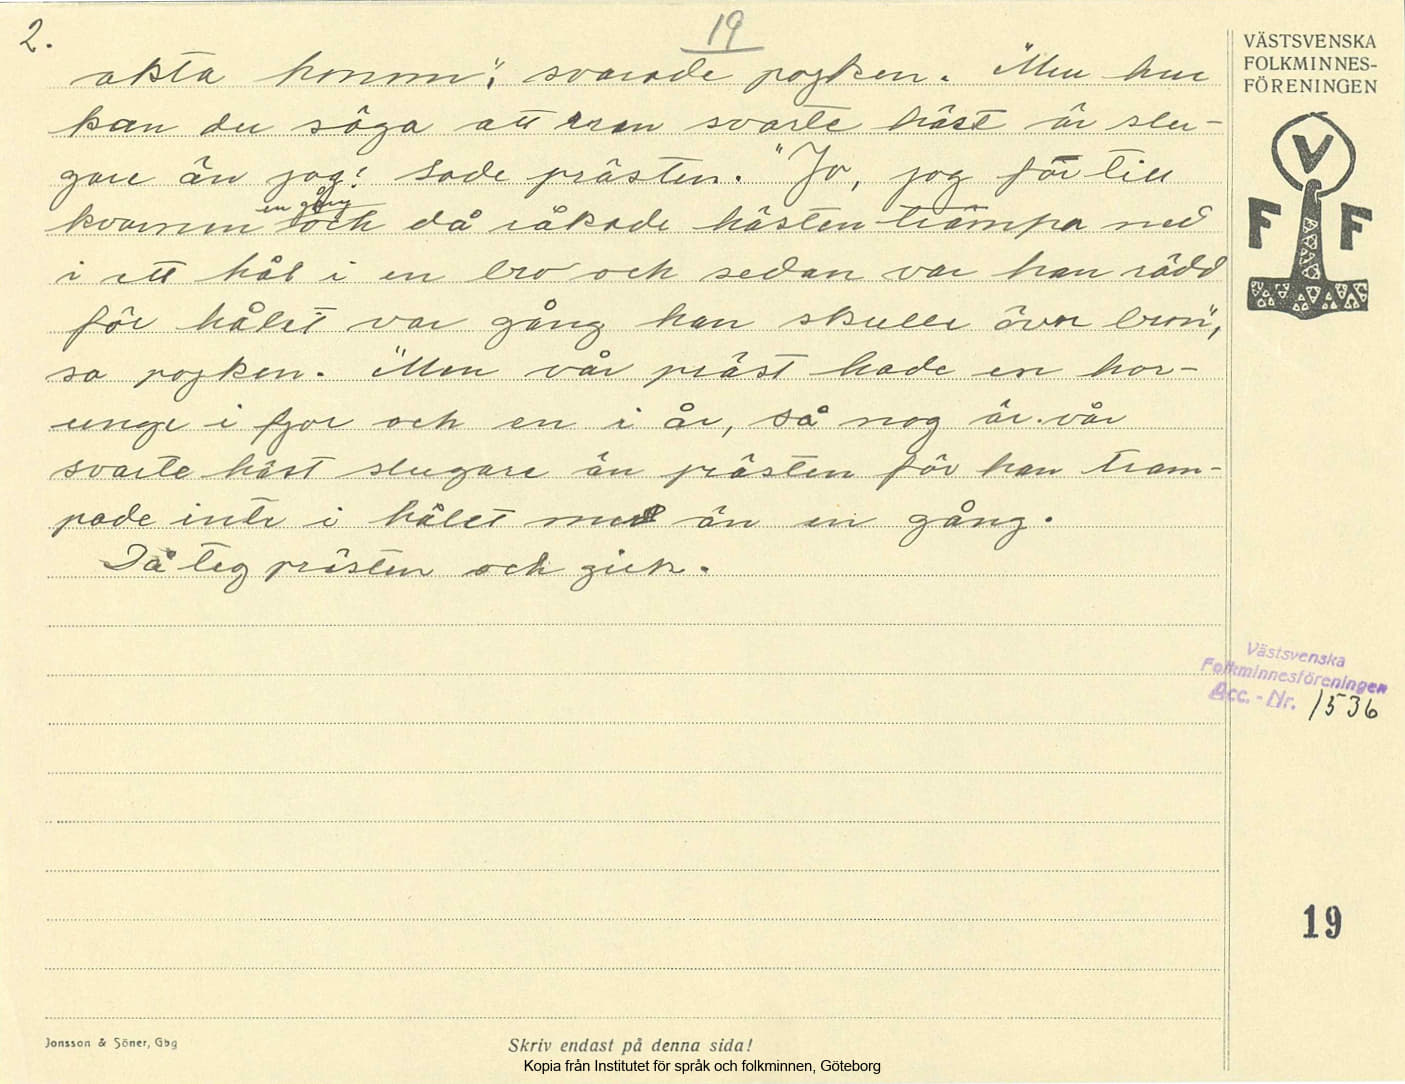 2.
19
akta honom", svarade pojken. "Men hur
kan du säga att eran svarte häst är slu-
gare än jag! sade prästen. "Jo, jag för till
kvarnen en gång och då råkade hästen trampa ned
i ett hål i en bro och sedan var han rädd
för hålet var gång han skulle över bron",
sa pojken. "Men vår präst hade en hor-
unge i fjor och en i år, så nog är vår
svarte häst slugare än prästen för han tram-
pade inte i hålet mer än en gång.
Då teg prästen och gick.
VÄSTSVENSKA
FOLKMINNES-
FÖRENINGEN
V
F F
Västsvenska
Folkminnesföreningen
Acc. - Nr. 1536
19
Jonsson & Söner, Gbg
Skriv endast på denna sida!
Kopia från Institutet för språk och folkminnen, Göteborg